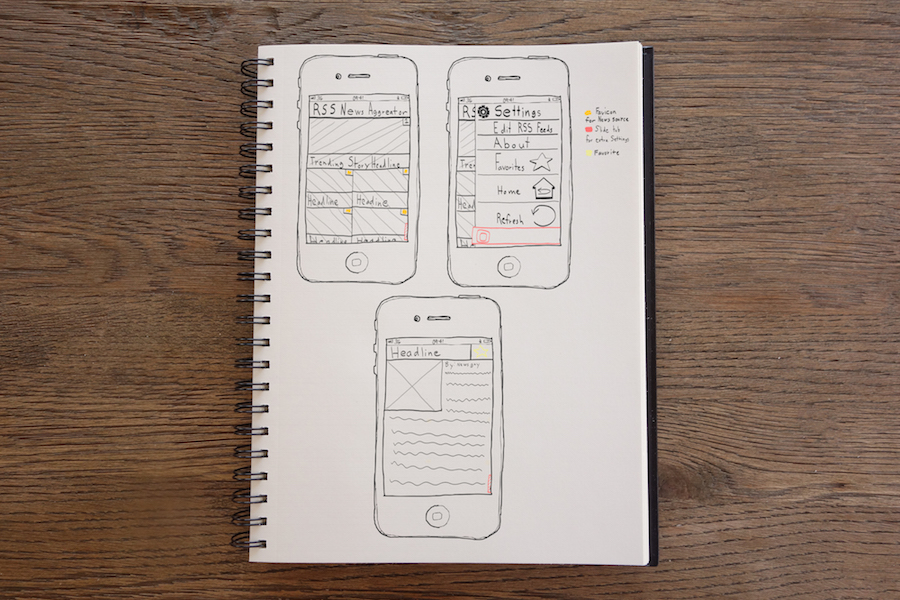 09:41
RSS News Aggreator
Trending Story Headline
Headline Headine
09:41
RS Settings
Edit RSS Feeds
About
Favorites
Home
Refresh
Favicon
for News source
Slide tab
for extra Settings
Favorite
09:41
Headline
By